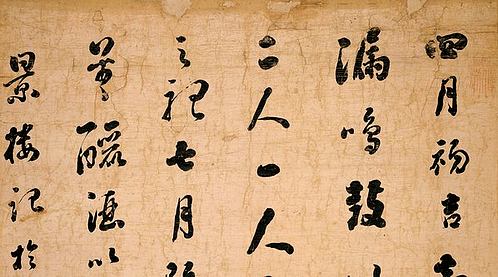 四月初吉
漏鳴鼓
二人一人
之祀七月
釃以
景樓記於